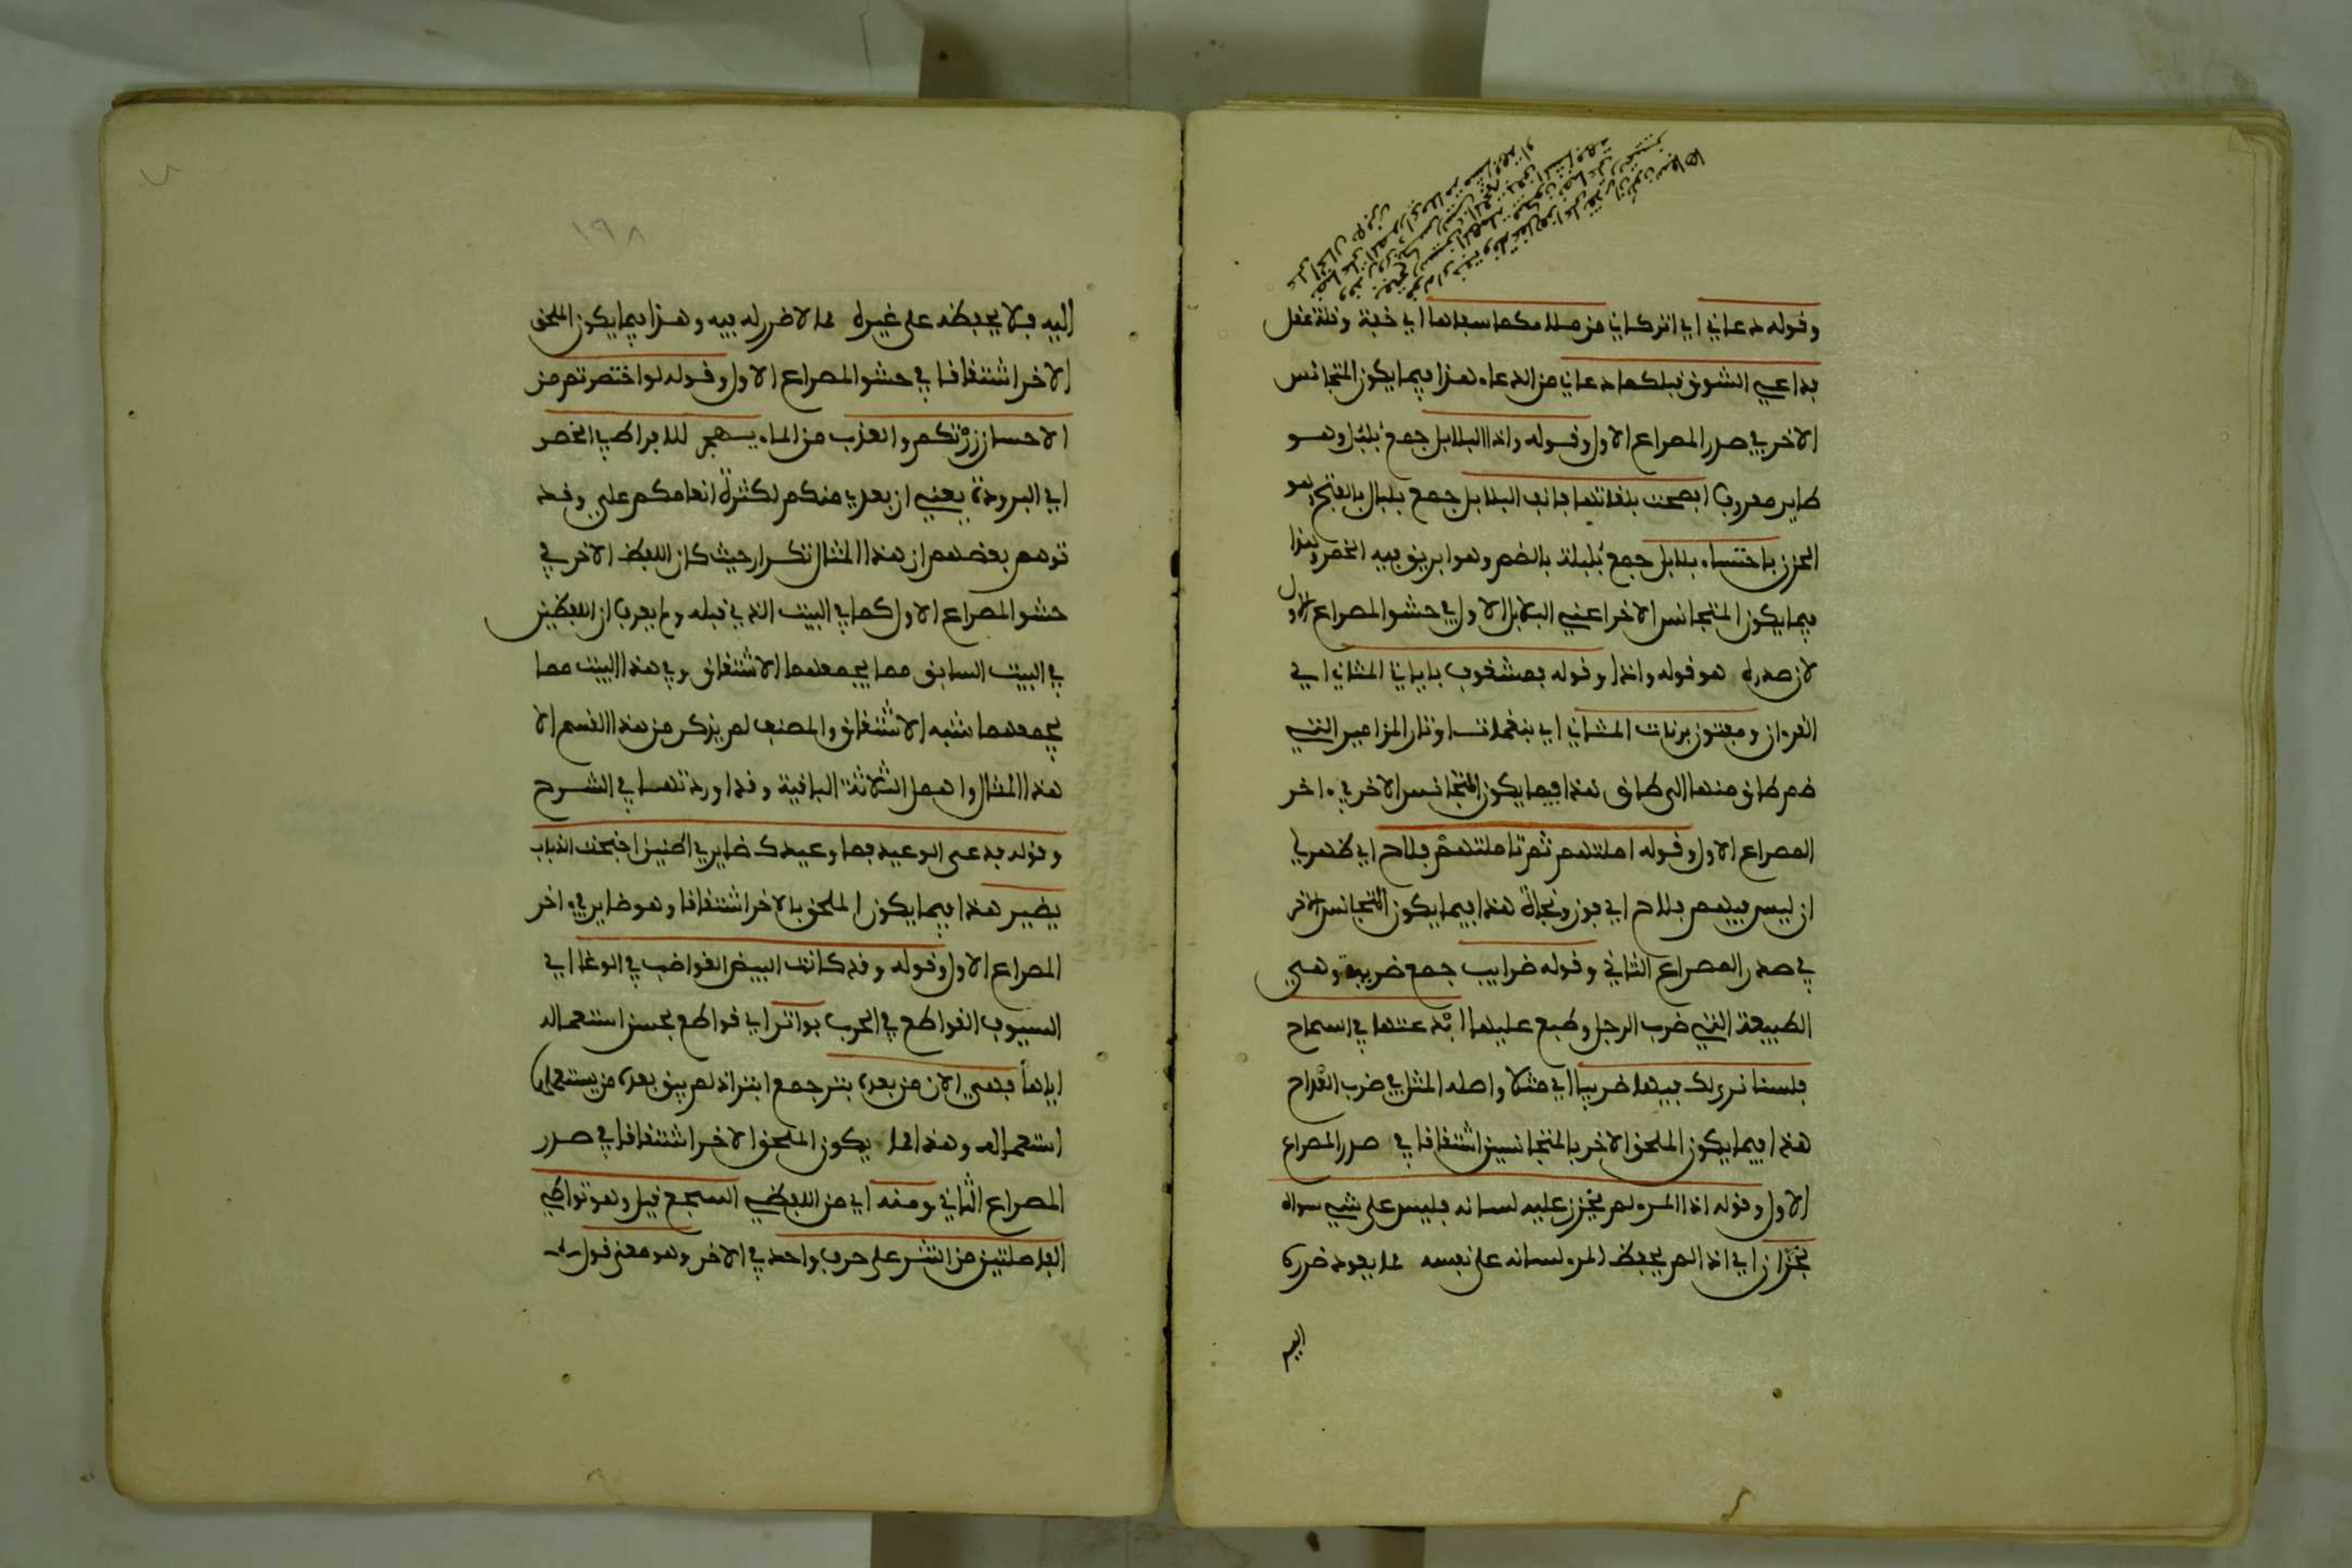 وقوله دعاني اي اتركاني من ملامكما سفاها اي خفة وقلة عقل
فداعي الشوق قبلكما دعاني من الدعاء هذا فيما يكون المتجانس
الاخر في صدر المصراع الاول وقوله واذا البلابل جمع بُلبُل وهو
طاير معروف افصحت بلغاتها فانف البلابل جمع بلبال بالفتح وهو
الحزن باحتساء بلابل جمع بُلبلة بالضم وهو ابريق فيه الخمر وهذا
فيما يكون المتجانس الاخر اعني البلابل الاول في حشو المصراع الاول
لان صدره هو قوله واذا وقوله فمشغوف بايات المثاني اي
القرءان ومفتون برنات المثاني اي بنغمات اوتار المزامير التي
ضم طاق منها الى طاق هذا فيما يكون المتجانس الاخر في ءاخر
المصراع الاول وقوله املتهم ثم تاملتهم فلاح اي ظهر لي
ان ليس فيهم فلاح اي فوز ونجاة هذا فيما يكون المتجانس الاخر
في صدر المصراع الثاني وقوله ضرايب جمع ضريبة وهي
الطبيعة التي ضرب الرجل وطبع عليها ابدعتها في السماح
فلسنا نرى لك فيها ضريبا اي مثلا واصله المثل في ضرب القداح
هذا فيما يكون الملحق الاخر بالمتجانسين اشتقاقا في صدر المصراع
الاول وقوله اذا المرء لم يخزن عليه لسانه فليس على شيء سواه
بخزان اي اذا لم يحفظ المرء لسانه على نفسه مما يعود ضرره
اليه
١٩٨
اليه فلا يحفظه على غيره مما لا ضرر له فيه وهذا فيما يكون الملحق
الاخر اشتقاقا في حشو المصراع الاول وقوله لو اختصرتم من
الاحسان زرتكم والعذب من الماء يهجر للافراط في الخصر
اي البرودة يعني ان بعدي منكم لكثرة انعامكم علي وقد
توهم بعضهم ان هذا المثال تكرار حيث كان اللفظ الاخر في
حشو المصراع الاول كما في البيت الذي قبله ولم يعرف ان اللفظين
في البيت السابق مما يجمعهما الاشتقاق وفي هذا البيت مما
يجمعهما شبه الاشتقاق والمصنف لم يذكر من هذا القسم الا
هذا المثال واهمل الثلاثة الباقية وقد اوردتها في الشرح
وقوله فدع الوعيد فما وعيدك ضايري اطنين اجنحة الذباب
يضير هذا فيما يكون الملحق بالاخر اشتقاقا وهو ضايري في ءاخر
المصراع الاول وقوله وقد كانت البيض القواضب في الوغا اي
السيوف القواطع في الحرب بواتر اي قواطع بحسن استعماله
اياها فهي الان من بعده بتر جمع ابتر اذ لم يبق بعده من يستعملها
استعماله وهذا مما يكون الملحق الاخر اشتقاقا في صدر
المصراع الثاني ومنه اي من اللفظي السجع قيل وهو تواطي
الفاصلتين من النثر على حرف واحد في الاخر وهو معنى قول